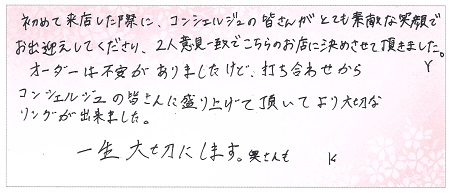 初めて来店した際に、コンシェルジュの皆さんがとても素敵な笑顔で
お出迎えしてくださり、2人意見一致でこちらのお店に決めさせて頂きました。
Y
オーダーは不安がありましたけど、打ち合わせから
コンシェルジュの皆さんに盛り上げて頂いてより大切な
リングが出来ました。
一生大切にします。奥さんも K